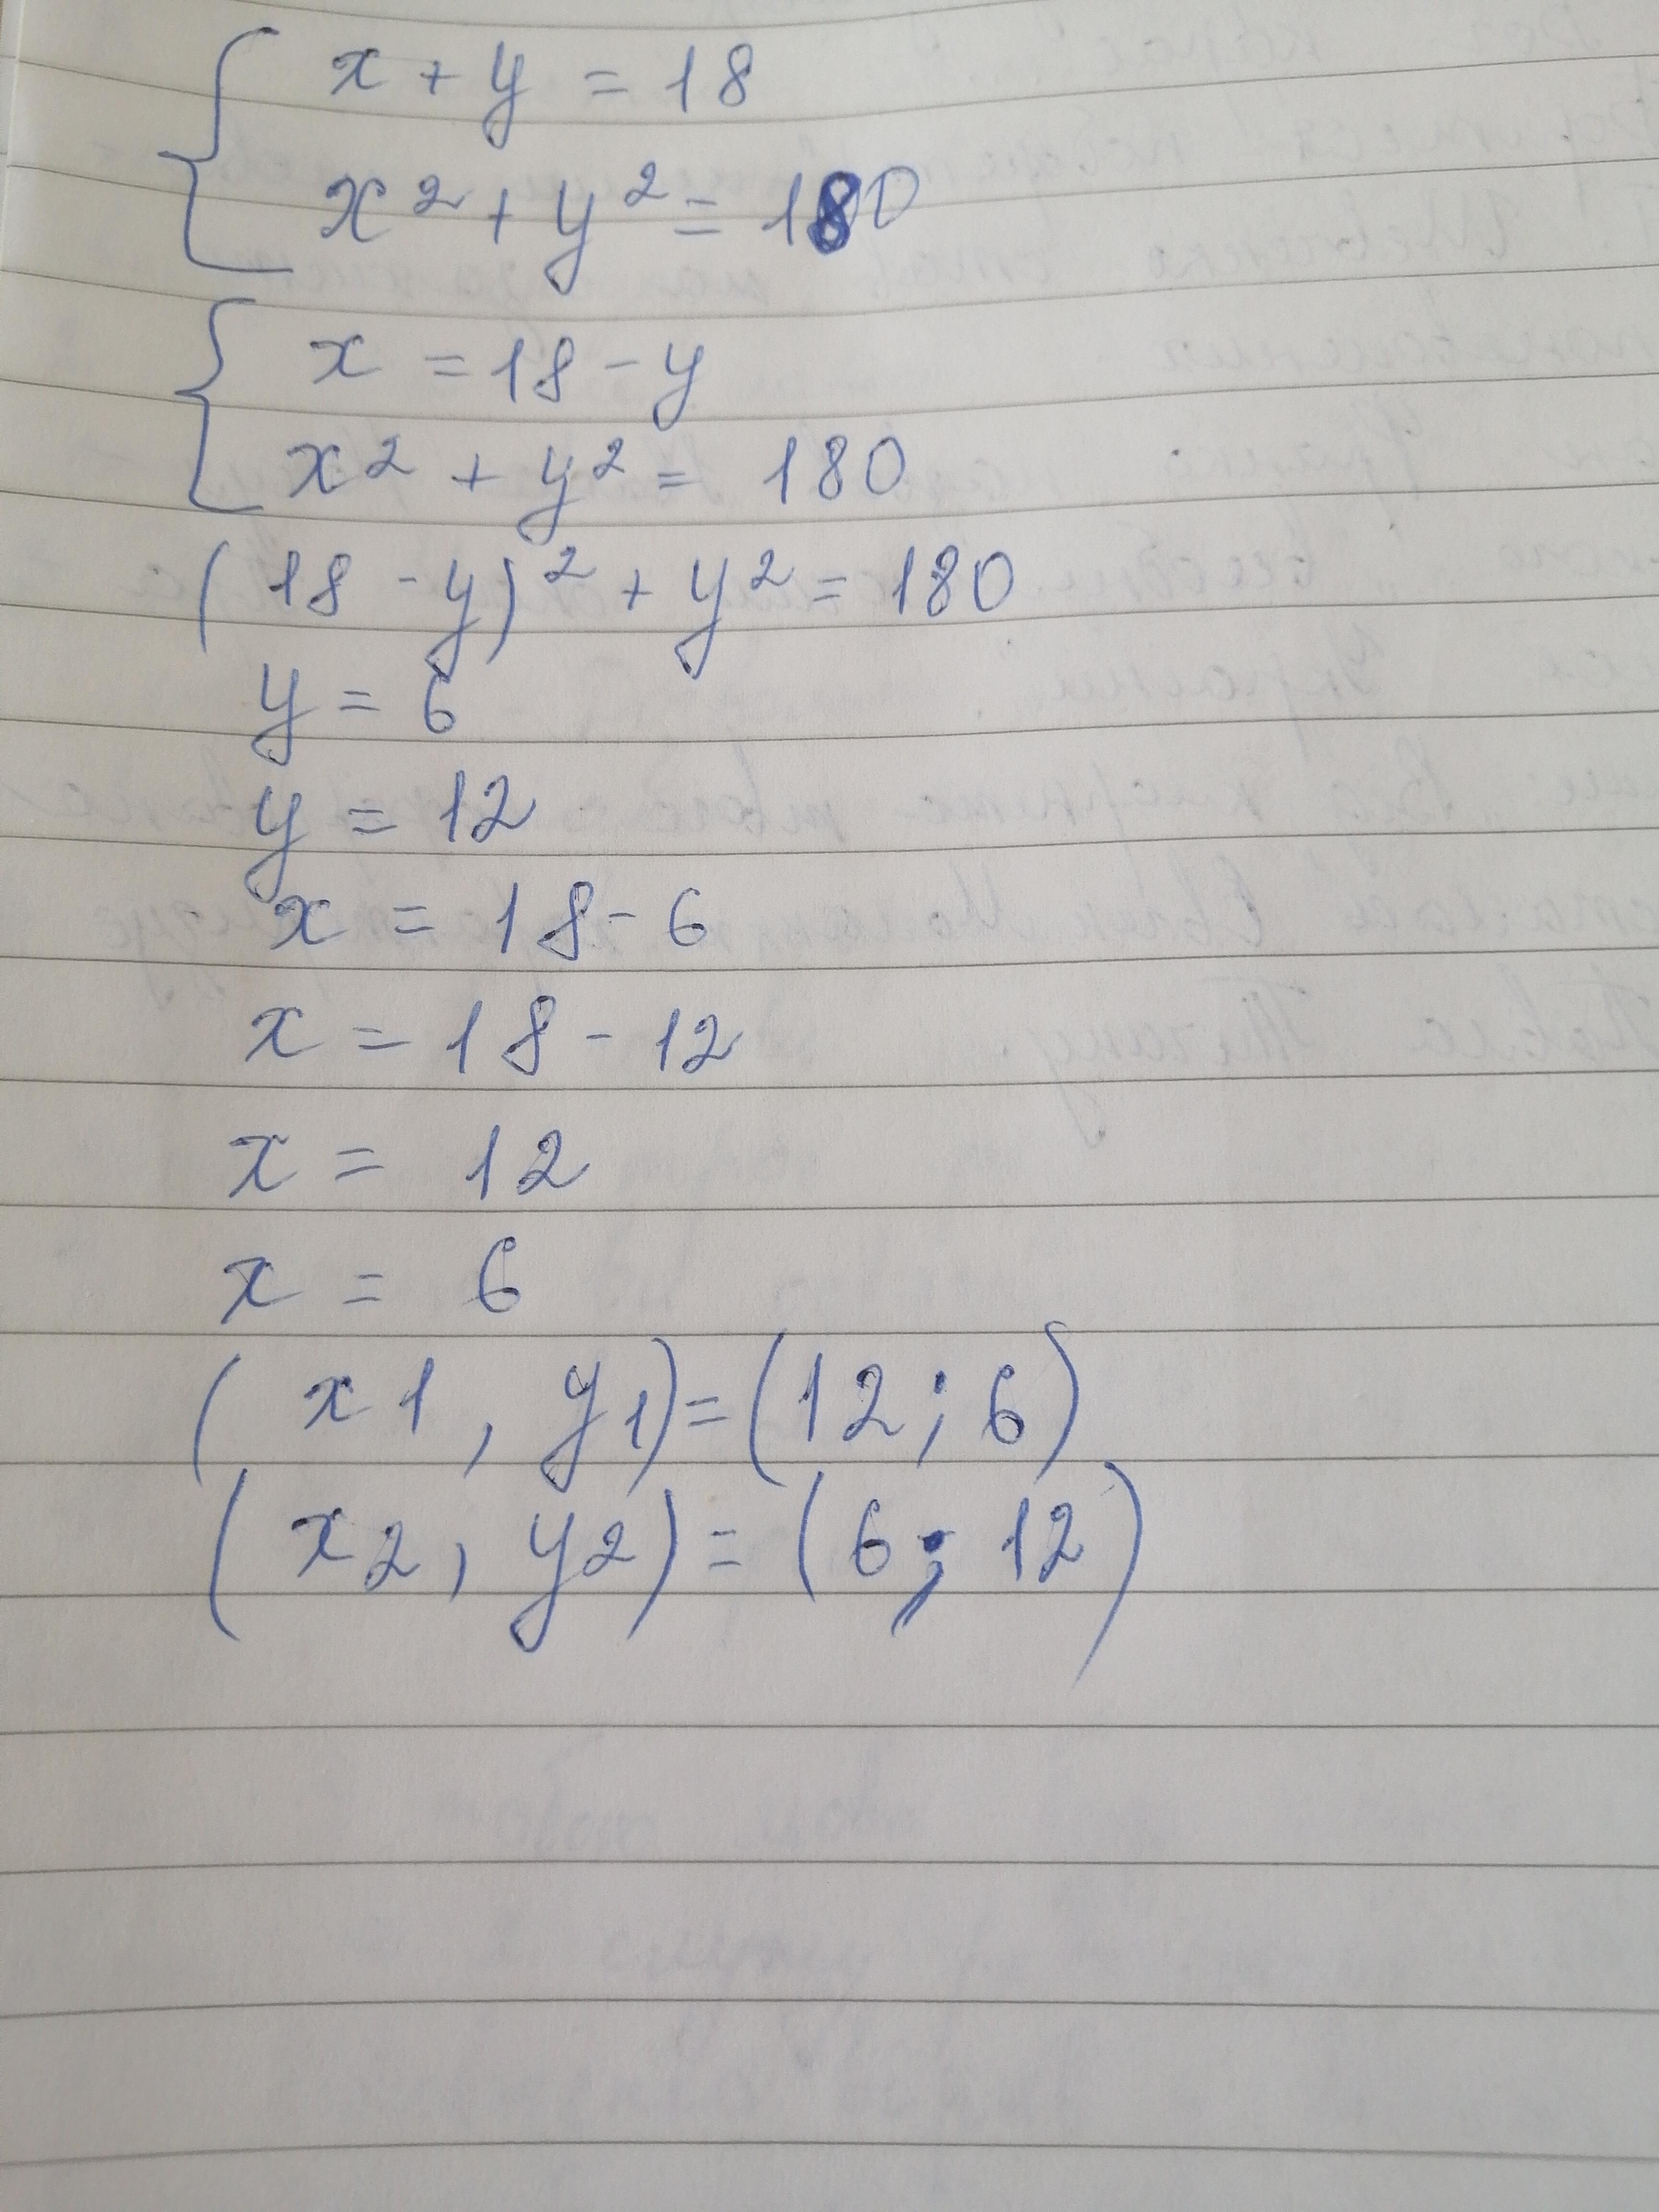 x + y = 18
x² + y² = 180
x = 18 - y
x² + y² = 180
(18 - y)² + y² = 180
y = 6
y = 12
x = 18 - 6
x = 18 - 12
x = 12
x = 6
(x1, y1) = (12; 6)
(x2, y2) = (6; 12)